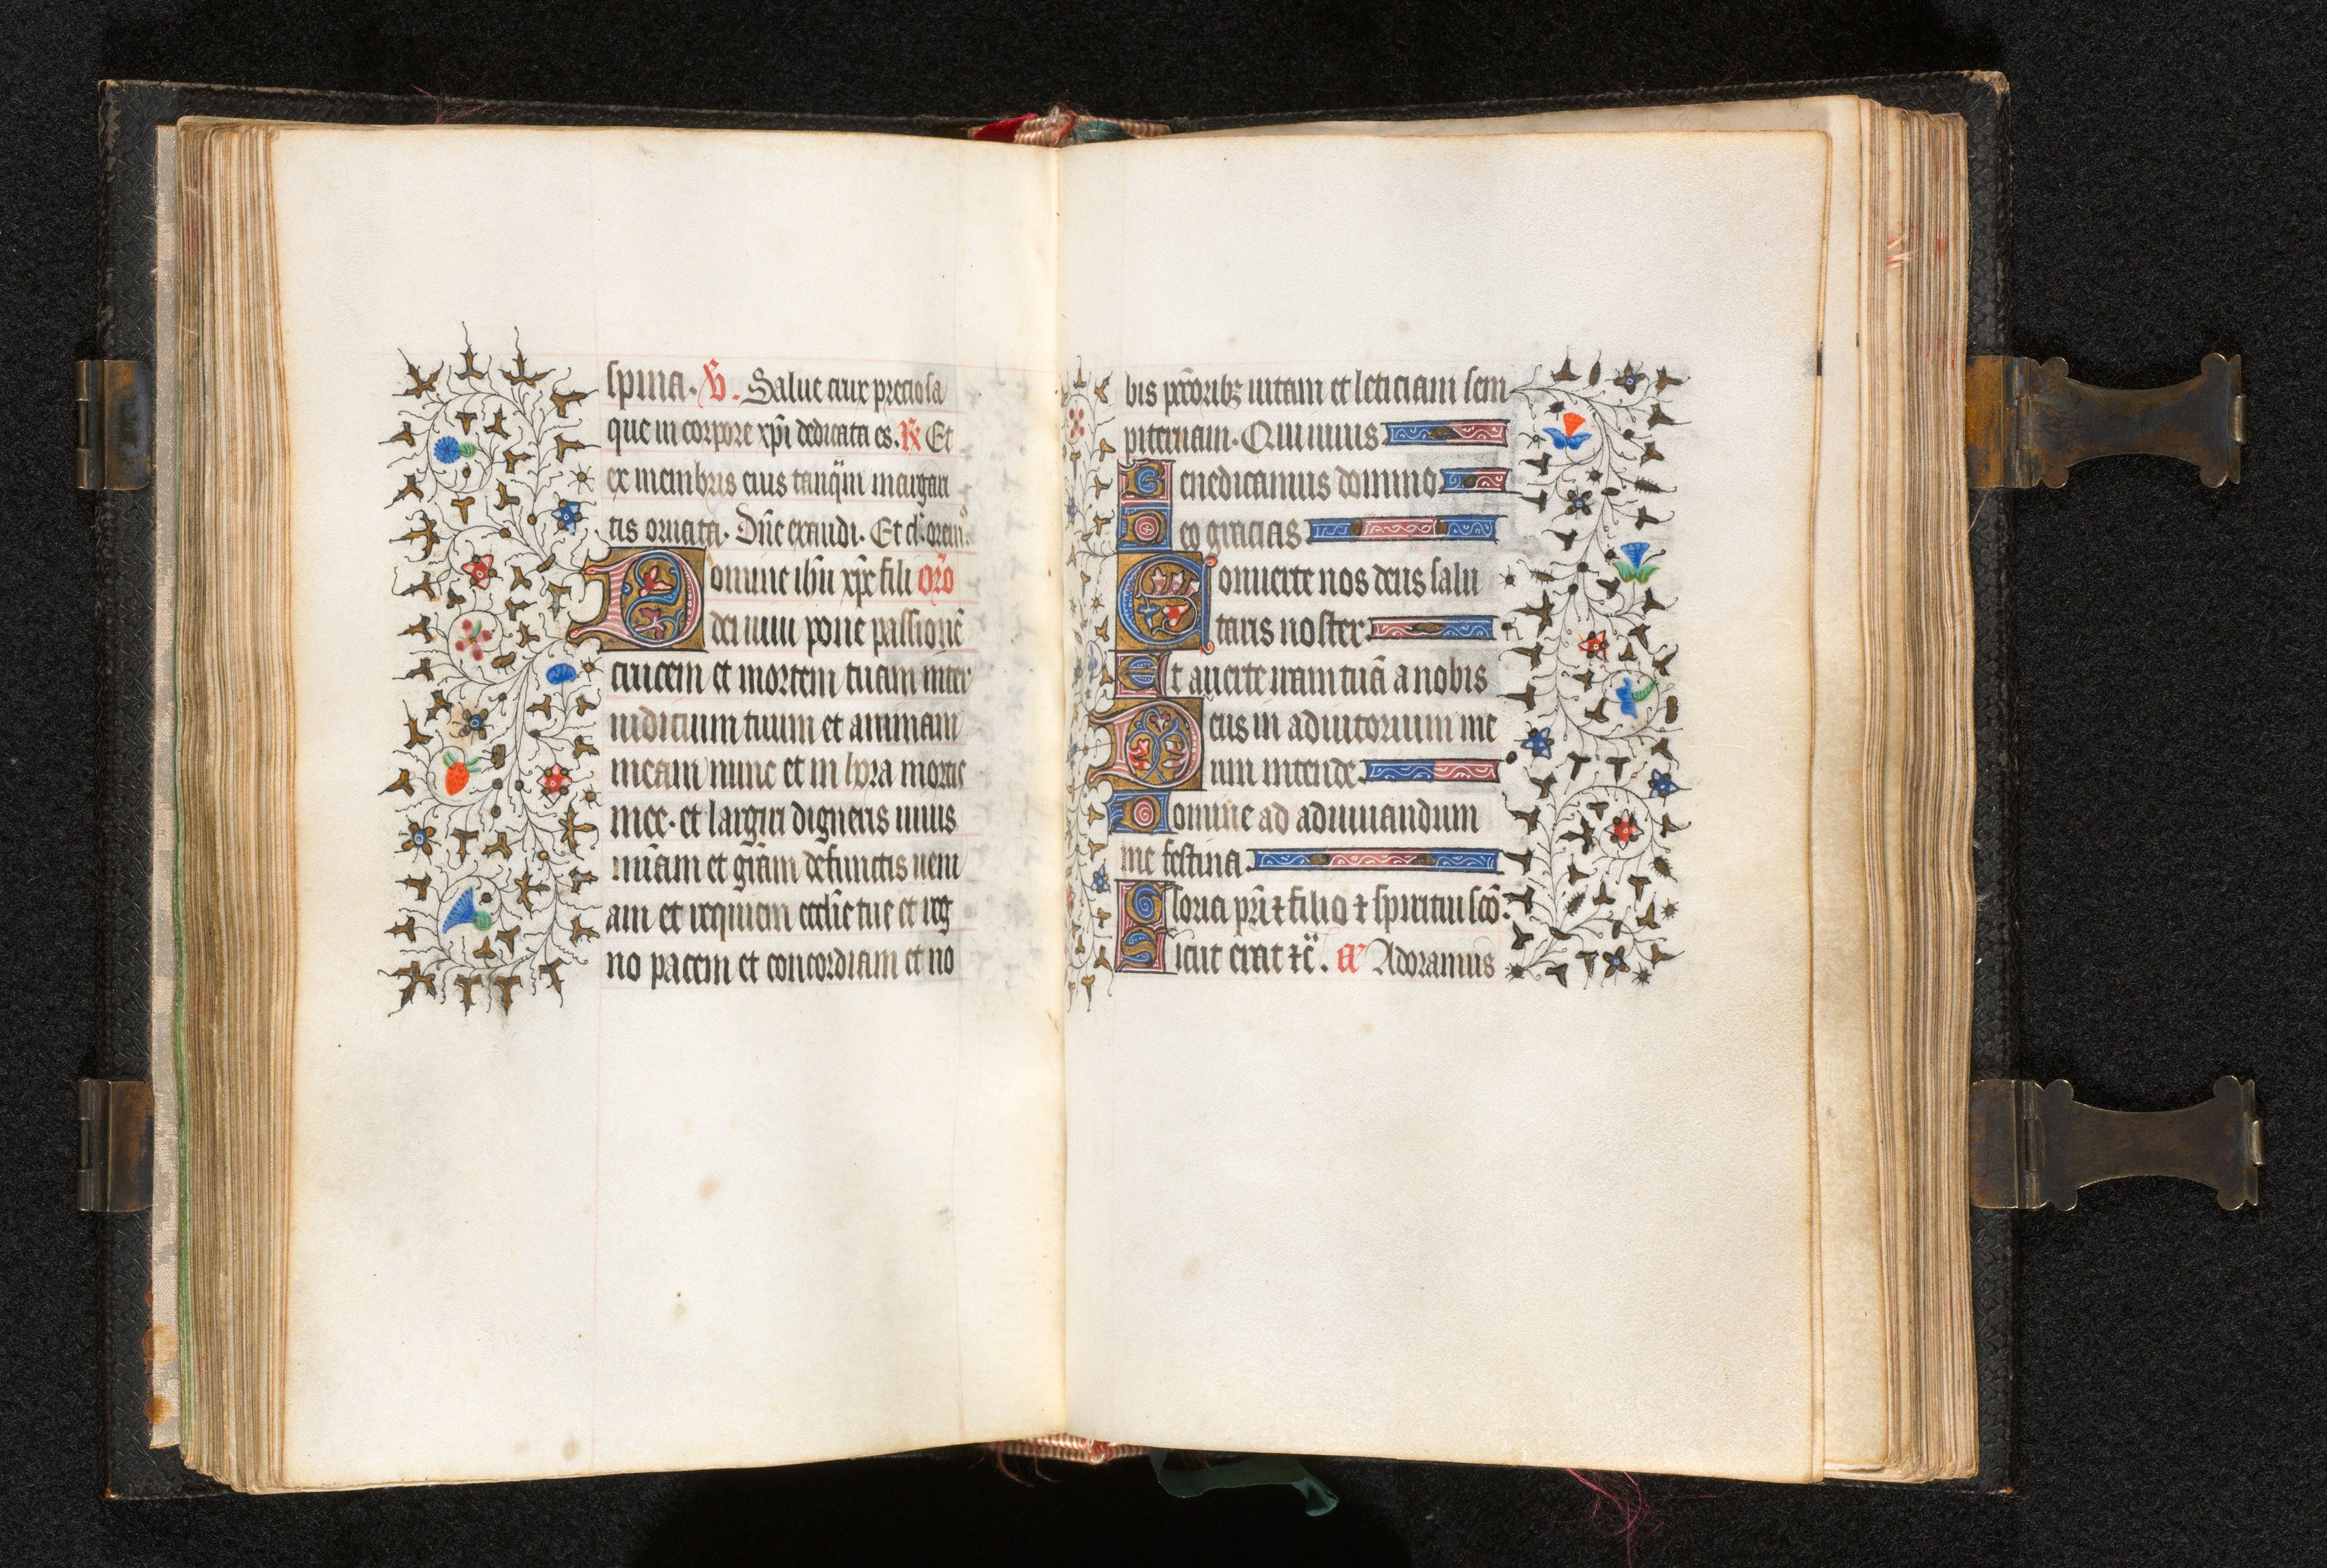 spina. V. Salue crux preciosa
que in corpore xp̄i dedicata es. R̷ Et
ex membris eius tanq̄m margari
tis ornata. Dn̄e exaudi. Et cl̄. orem⁹.
Domine ih̄u xp̄e fili or̄o
dei uiui pone passionē
crucem et mortem tuam inter
iudicium tuum et animam
meam nunc et in hora mortis
mee. et largiri digneris uiuis
mīam et gr̄am defunctis ueni
am et requiem ecclīe tue et reg
no pacem et concordiam et no
bis pc̄coribꝫ uitam et leticiam sem
piternam. Qui uiuis
Benedicamus domino
Deo gracias
Conuerte nos deus salu
taris noster
Et auerte iram tuā a nobis
Deus in adiutorium me
um intende
Domine ad adiuuandum
me festina.
Gloria pr̄i ⁊ filio ⁊ spiritui scō.
Sicut erat ⁊c̄. an̄ Adoramus